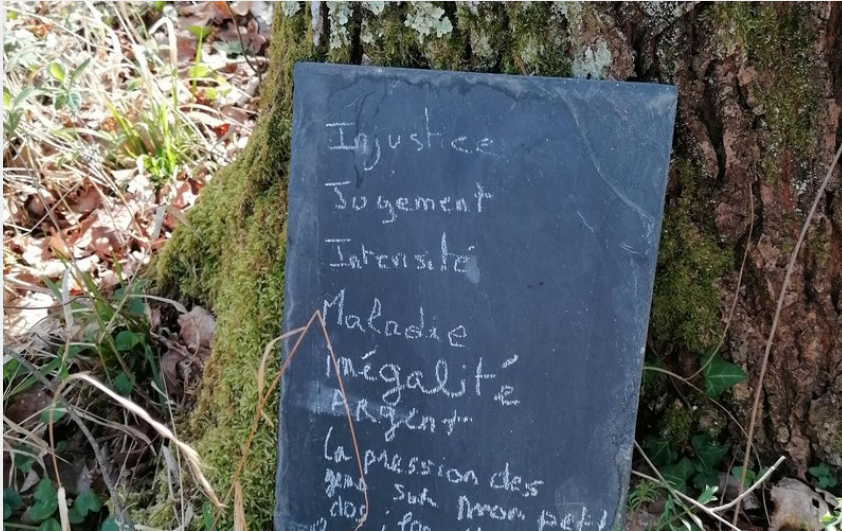 Injustice
Jugement
Intensité
Maladie
inégalité
Argent
la pression des
gens sur mon petit
dos